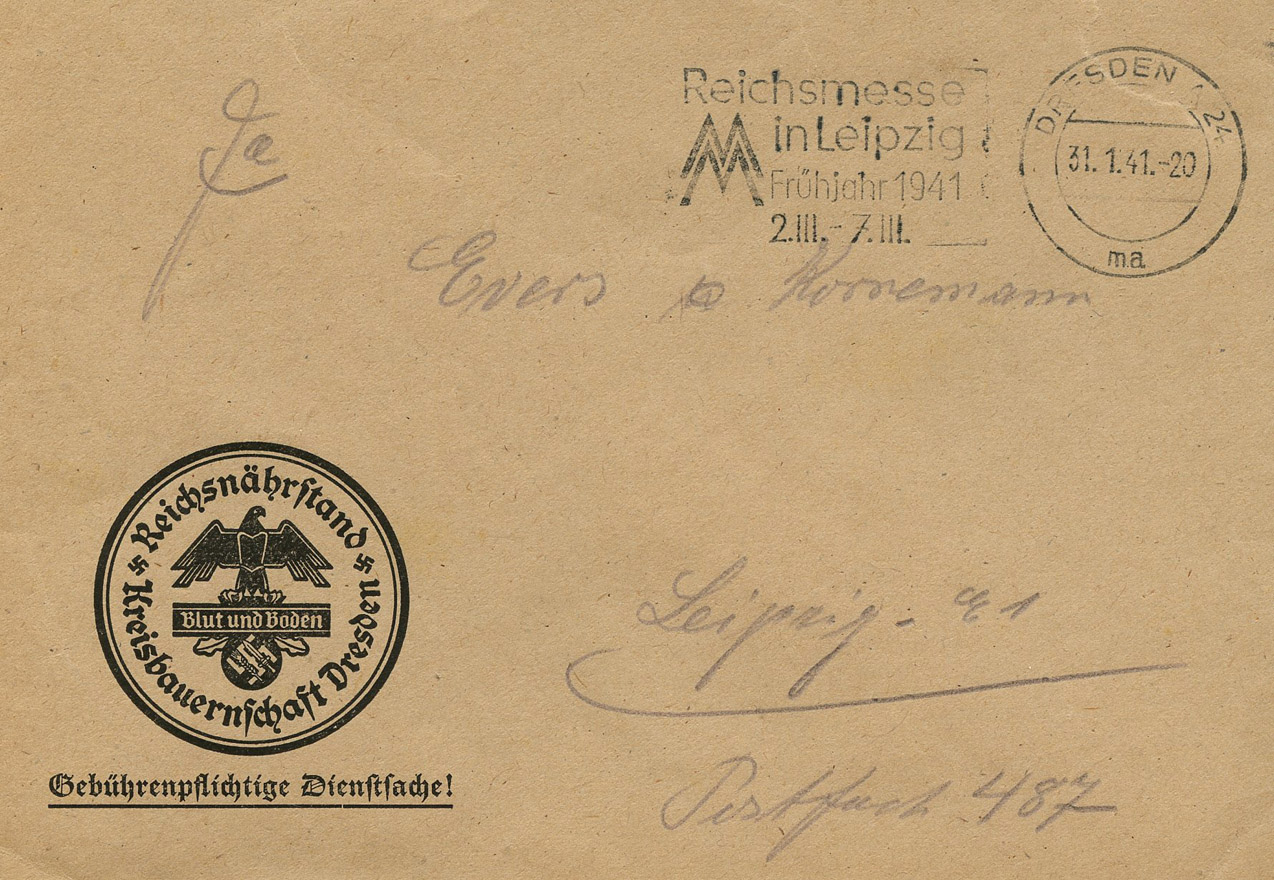 Reichsmesse
in Leipzig
Frühjahr 1941
2.III.-7.III.
DRESDEN A 24
31.1.41.-20
ma
Fa
Evers & Kornemann
Reichsnährstand
Blut und Boden
Kreisbauernschaft Dresden
Gebührenpflichtige Dienstsache!
Leipzig-C1
Postfach 487